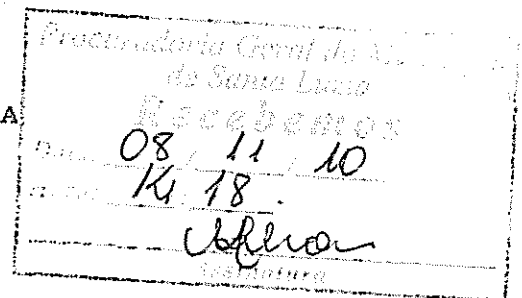 Procuradoria Geral do
de Santa Luzia
Recebemos
A
Data: 08 / 11 / 10
14 18.
Assinatura